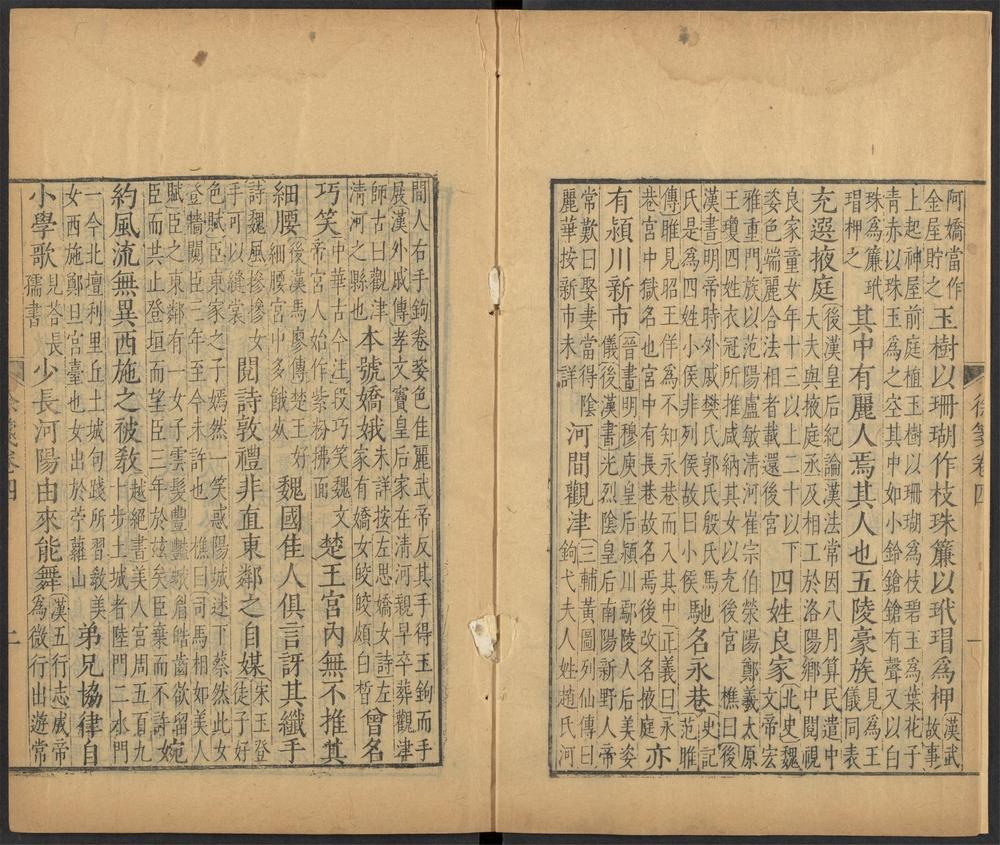 徐箋卷四
一
阿嬌當作
金屋貯之
玉樹以珊瑚作枝珠簾以玳瑁為柙
漢武
故事
上起神屋前庭植玉樹以珊瑚為枝碧玉為葉花子
青赤以珠玉為之空其中如小鈴鎗鎗有聲又以白
珠為簾玳
瑁柙之
其中有麗人焉其人也五陵豪族
見為王
儀同表
充選掖庭
後漢皇后紀論漢法常因八月算民遣中
大夫與掖庭丞及相工於洛陽鄉中閱視
良家童女年十三以上二十以下
姿色端麗合法相者載還後宮
四姓良家
北史魏
文帝宏
雅重門族以范陽盧敏清河崔宗伯滎陽鄭羲太原
王瓊四姓衣冠所推咸納其女以充後宮 樵曰後
漢書明帝時外戚樊氏郭氏殷氏馬
氏是為四姓小侯非列侯故曰小侯
馳名永巷
史記
范睢
傳睢見昭王佯為不知永巷而入其中正義曰永
巷宮中獄名也宮中有長巷故名焉後改名掖庭
亦
有潁川新市
晉書明穆庾皇后潁川鄢陵人后美姿
儀後漢書光烈陰皇后南陽新野人帝
常歎曰娶妻當得陰
麗華按新市未詳
河間觀津
三輔黃圖列仙傳曰
鉤弋夫人姓趙氏河
間人右手鉤卷姿色佳麗武帝反其手得玉鉤而手
展漢外戚傳孝文竇皇后家在清河親早卒葬觀津
師古曰觀津
清河之縣也
本號嬌娥
未詳按左思嬌女詩左
家有嬌女皎皎頗白晳
曾名
巧笑
中華古今注段巧笑魏文
帝宮人始作紫粉拂面
楚王宮內無不推其
細腰
後漢馬廖傳楚王好
細腰宮中多餓死
魏國佳人俱言訝其纖手
詩魏風摻摻女
手可以縫裳
閱詩敦禮非直東鄰之自媒
宋玉登
徒子好
色賦臣東家之子嫣然一笑惑陽城迷下蔡然此女
登牆闚臣三年至今未許也 樵曰司馬相如美人
賦臣之東鄰有一女子雲髮豐豔蛾眉皓齒欲留
臣而共止登垣而望臣三年於茲矣臣棄而不許
婉
約風流無異西施之被教
越絕書美人宮周五百九
十步土城者陸門二水門
一今北壇利里丘土城句踐所習教美
女西施鄭旦宮臺也女出於苧蘿山
弟兄協律自
小學歌
見荅長
孺書
少長河陽由來能舞
漢五行志成帝
為微行出遊常